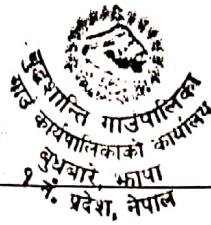 बुद्धशान्ति गाउँपालिका
गाउँ कार्यपालिकाको कार्यालय
बुधबारे, झापा
१ नं. प्रदेश, नेपाल